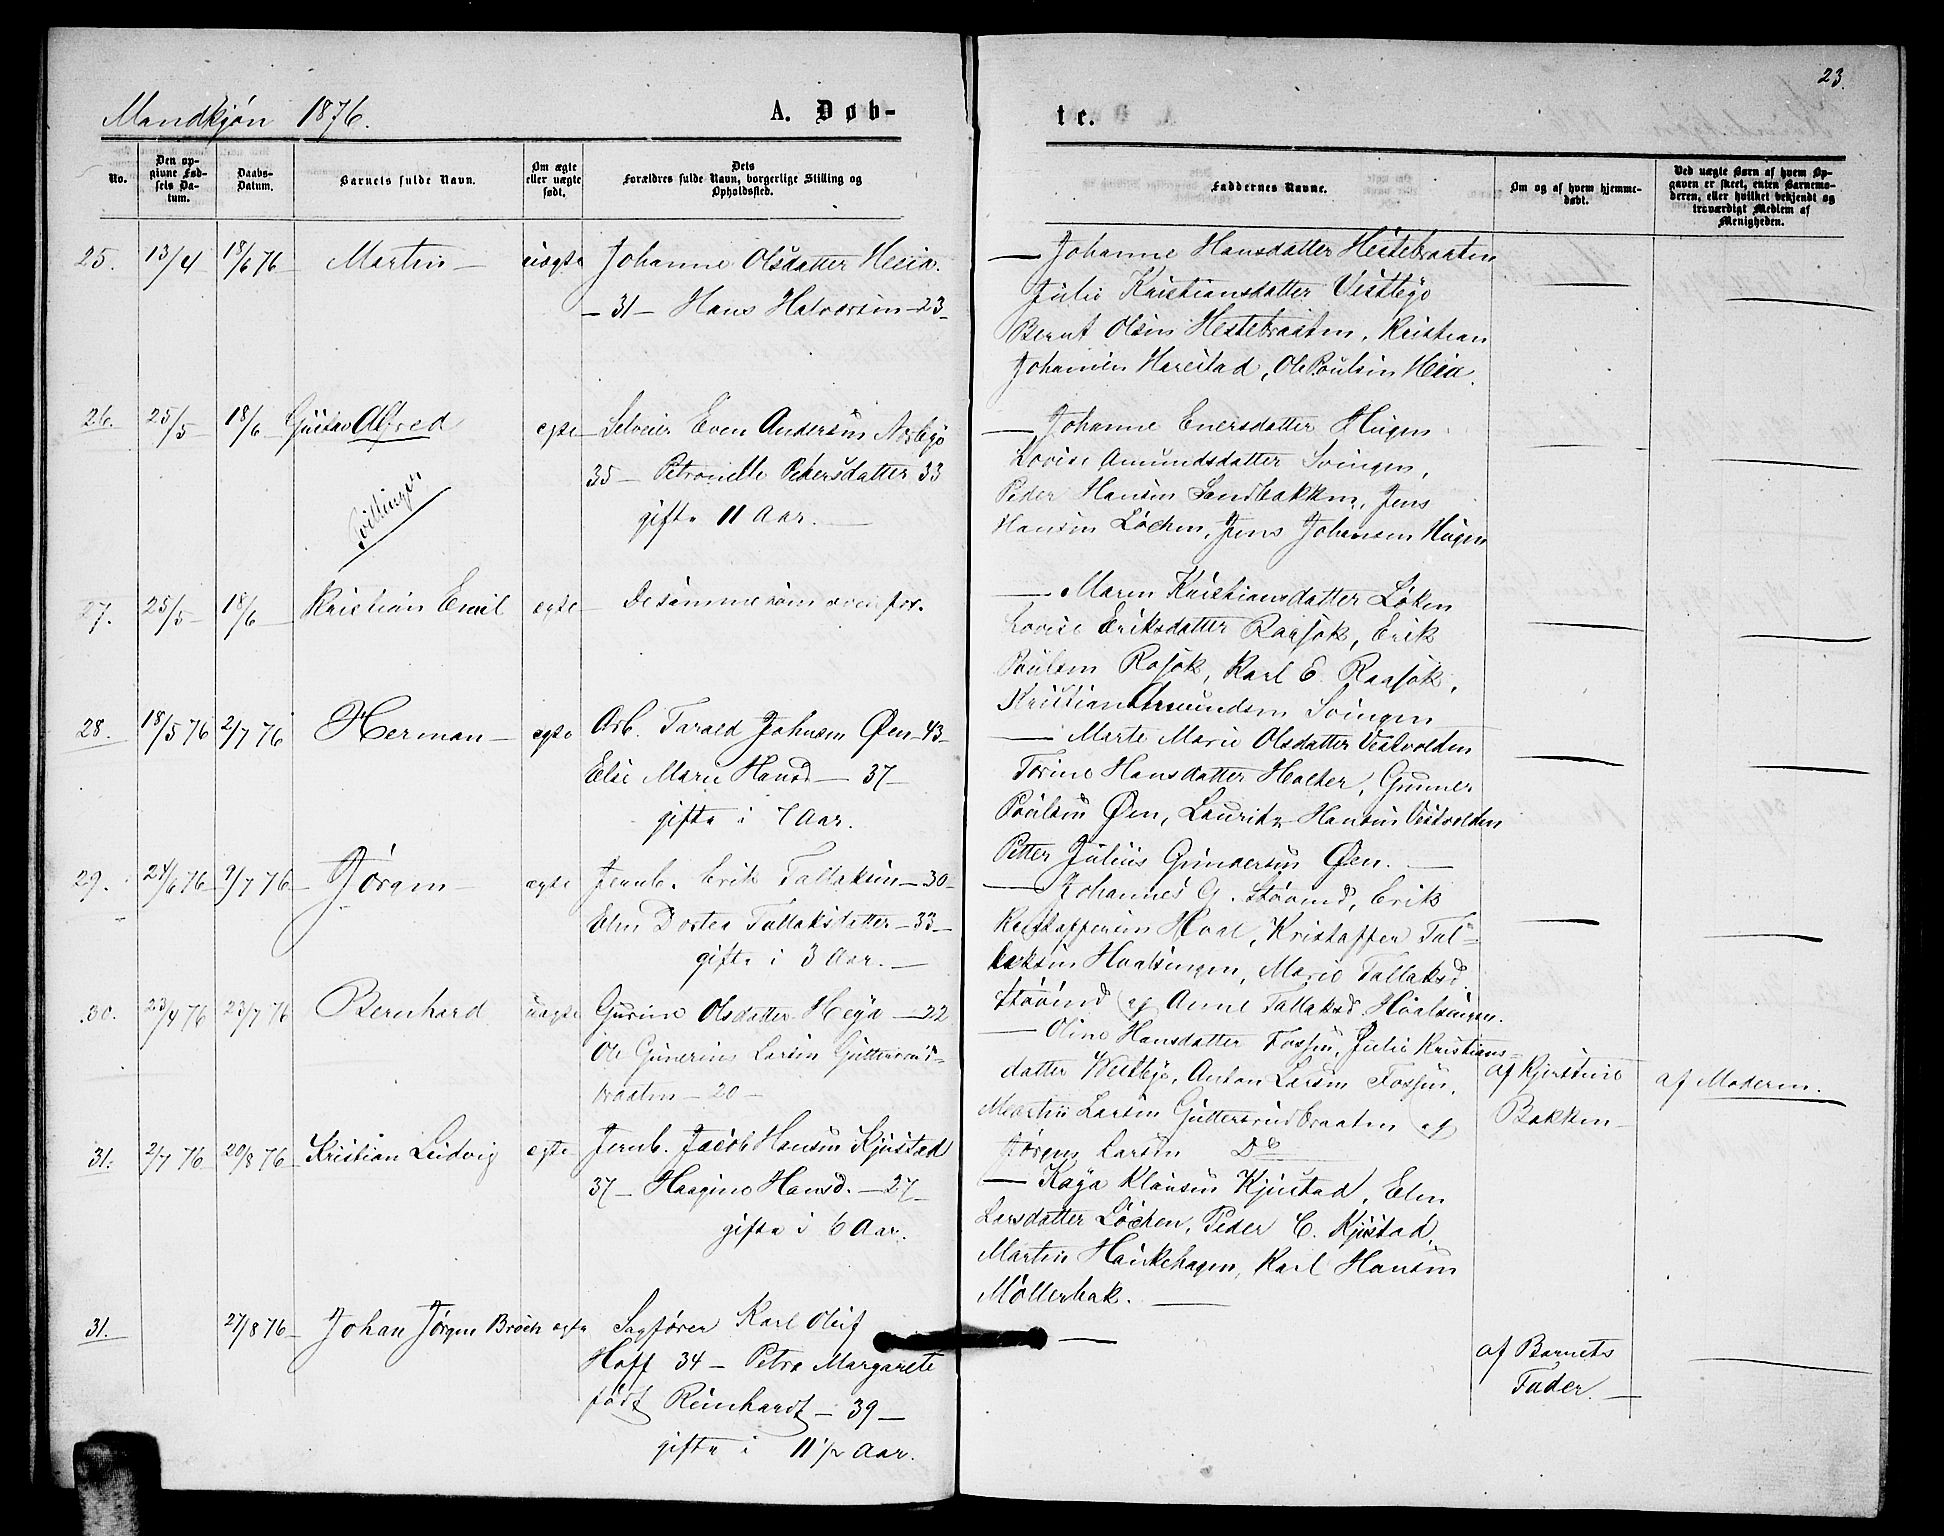 23.
Mandkjøn 1876.
A. Døb-
te.
No.
Den op-
givne Fød-
sels Da-
tum.
Daabs-
Datum.
Barnets fulde Navn.
Om ægte
eller uægte
født.
Dets
Forældres fulde Navn, borgerlige Stilling og
Opholdssted.
Faddernes Navne.
Om og af hvem hjemme-
døbt.
Ved uægte Børn af hvem Op-
gaven er skeet, enten Barnemo-
deren, eller hvilket bekjendt og
troværdigt Medlem af
Menigheden.
25. 13/4 18/6 76 Martin uægte Johanne Olsdatter Heia.
- 31 - Hans Halvorsen - 23 -
Johanne Hansdatter Hestebraaten
Julie Kristiansdatter Vestbyø
Bernt Olsen Hestebraaten, Kristian
Johannesen Harestad, Ole Poulsen Heia.
26. 25/5 18/6 Gustav Alfred egte Selveier Even Andersen Nordbyø
35 - Petronelle Pedersdatter 33
gifte 11 Aar.
Tvillinger
Johanne Enersdatter Haugen
Lovise Amundsdatter Svingen,
Peder Hansen Sandbakken, Jens
Hansen Løchen, Jens Johansen Haugen
27. 25/5 18/6 Kristian Emil egte De samme som ovenfor.
Maren Kristiansdatter Løken
Lovise Eriksdatter Raasok, Erik
Poulsen Rasok, Karl E. Raasok,
Kristian Amundsen Svingen
28. 18/5 76 2/7 76 Herman egte Arb. Tarald Johnsen Øen - 43 -
Else Marie Hansd - 37 -
gifte i 7 Aar.
Marte Marie Olsdatter Vestvolden
Torine Hansdatter Holter, Gunner
Poulsen Øen, Lauritz Hansen Vestvolden
Petter Julius Gundersen Øen.
29. 24/6 76 9/7 76 Jørgen ægte Jernb. Erik Tallaksen - 30 -
Elen Dortea Tallaksdatter - 33 -
gifte i 3 Aar.
Johannes G. Støvind, Erik
Kristoffersen Hval, Kristoffer Tal-
laksen Hvalsengen, Marie Tallaksd.
Støvind og Anne Tallaksd. Hvalsengen.
30. 23/4 76 23/7 76 Bernhard uægte Gurine Olsdatter Heya - 22
Ole Gunerius Larsen Guttersrud-
braaten - 20 -
Oline Hansdatter Fossen, Julie Kristians-
datter Westbye, Anton Larsen Fossen,
Martin Larsen Guttersrudbraaten og
Jørgen Larsen Do
af Kjerstine
Bakken
af Moderen.
31. 2/7 76 20/8 76 Kristian Ludvig egte Jernb. Jacob Hansen Kjustad
37 - Haagine Hansd. - 27 -
gifte i 6 Aar.
Kaya Klausen Kjustad, Elen
Larsdatter Løchen, Peder C. Kjustad,
Martin Haukehagen, Karl Hansen
Møllerbak.
31. 27/8 76 Johan Jørgen Broch egte Sagfører Karl Oluf
Hoff 34 - Petra Margarete
født Reinhardt - 39 -
gifte i 11 1/2 Aar.
af Barnets
Fader.